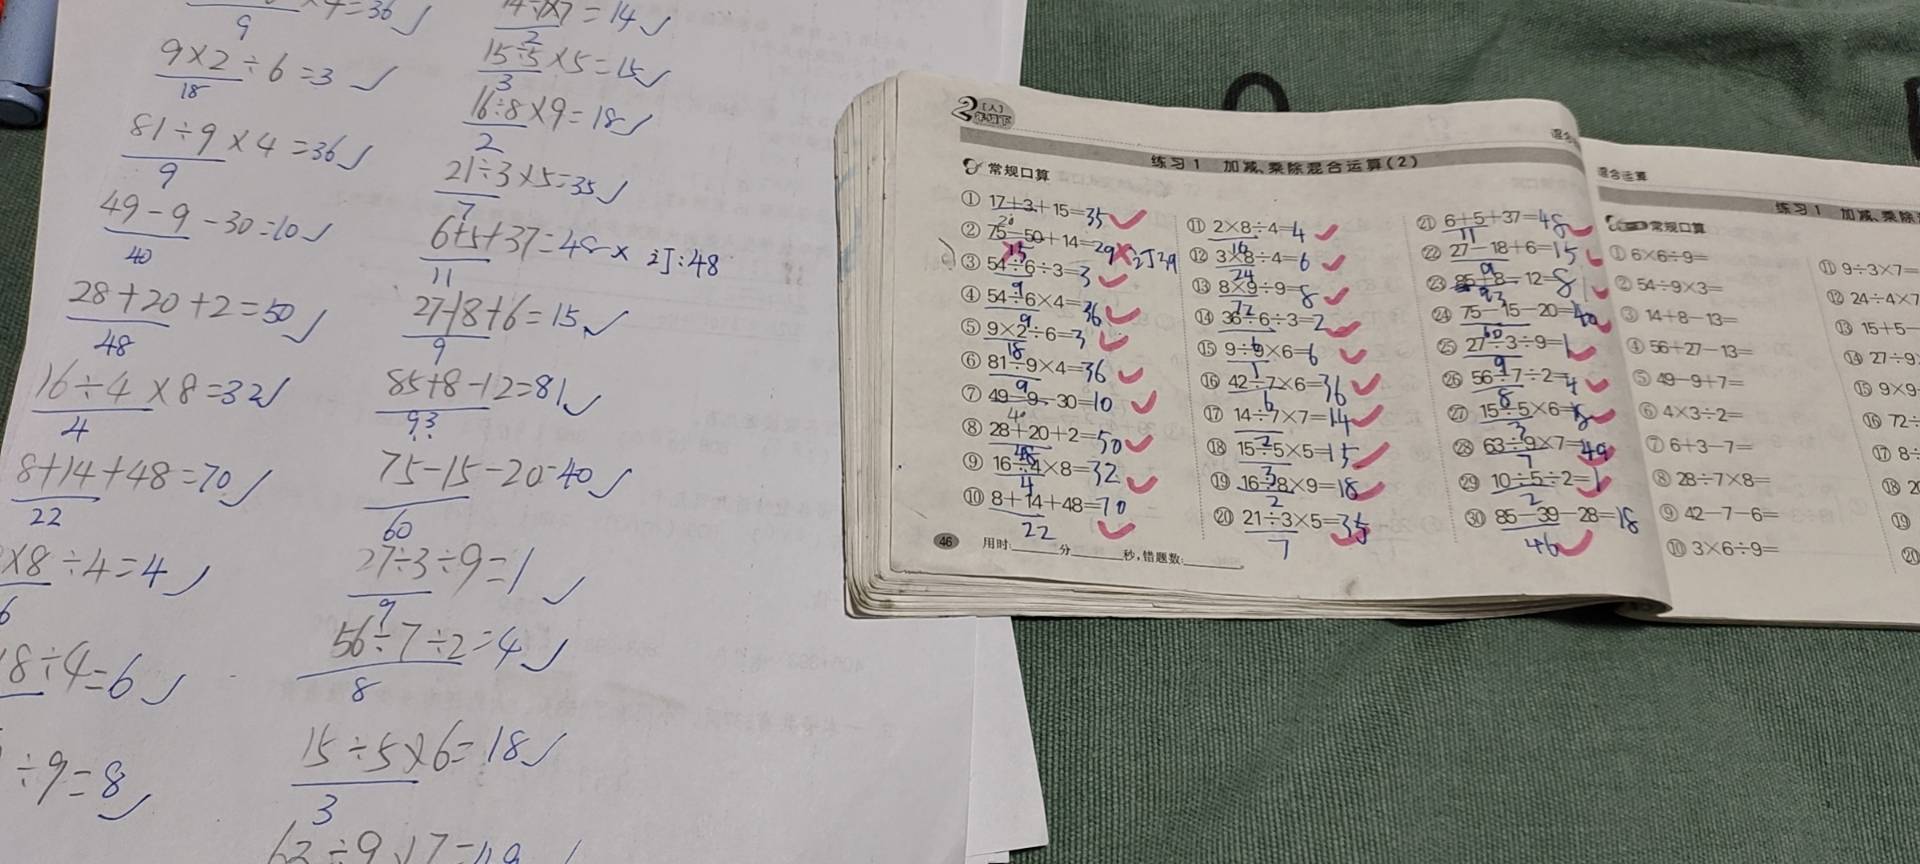 9
×4=36
9×2÷6=3
18
81÷9×4=36
9
49-9-30=10
40
28+20+2=50
48
16÷4×8=32
4
8+14+48=70
22
×8÷4=4
6
8÷4=6
÷9=8
14÷7×7=14
2
15÷5×5=15
3
16÷8×9=18
2
21÷3×5=35
7
6+5+37=48× 订:48
11
27-18+6=15
9
85+8-12=81
93
75-15-20=40
60
27÷3÷9=1
9
56÷7÷2=4
8
15÷5×6=18
3
63÷9×7=49
2[人]
年级下
练习1 加减、乘除混合运算(2)
常规口算
①17+3+15=35
20
②75-50+14=29 订39
③54÷6÷3=3
9
④54÷6×4=36
9
⑤9×2÷6=3
18
⑥81÷9×4=36
9
⑦49-9-30=10
40
⑧28+20+2=50
48
⑨16÷4×8=32
4
⑩8+14+48=70
22
⑪2×8÷4=4
16
⑫3×8÷4=6
24
⑬8×9÷9=8
72
⑭36÷6÷3=2
6
⑮9÷9×6=6
1
⑯42÷7×6=36
6
⑰14÷7×7=14
2
⑱15÷5×5=15
3
⑲16÷8×9=18
2
⑳21÷3×5=35
7
㉑6+5+37=48
11
㉒27-18+6=15
9
㉓85+8-12=81
93
㉔75-15-20=40
60
㉕27÷3÷9=1
9
㉖56÷7÷2=4
8
㉗15÷5×6=18
3
㉘63÷9×7=49
7
㉙10÷5÷2=1
2
㉚85-39-28=18
46
46 用时:____分____秒,错题数:____。
混合运算
练习1 加减、乘除
常规口算
①6×6÷9=
②54÷9×3=
③14+8-13=
④56+27-13=
⑤49-9+7=
⑥4×3÷2=
⑦6+3-7=
⑧28÷7×8=
⑨42-7-6=
⑩3×6÷9=
⑪9÷3×7=
⑫24÷4×7
⑬15+5-
⑭27÷9
⑮9×9
⑯72÷
⑰8÷
⑱2
⑲
⑳